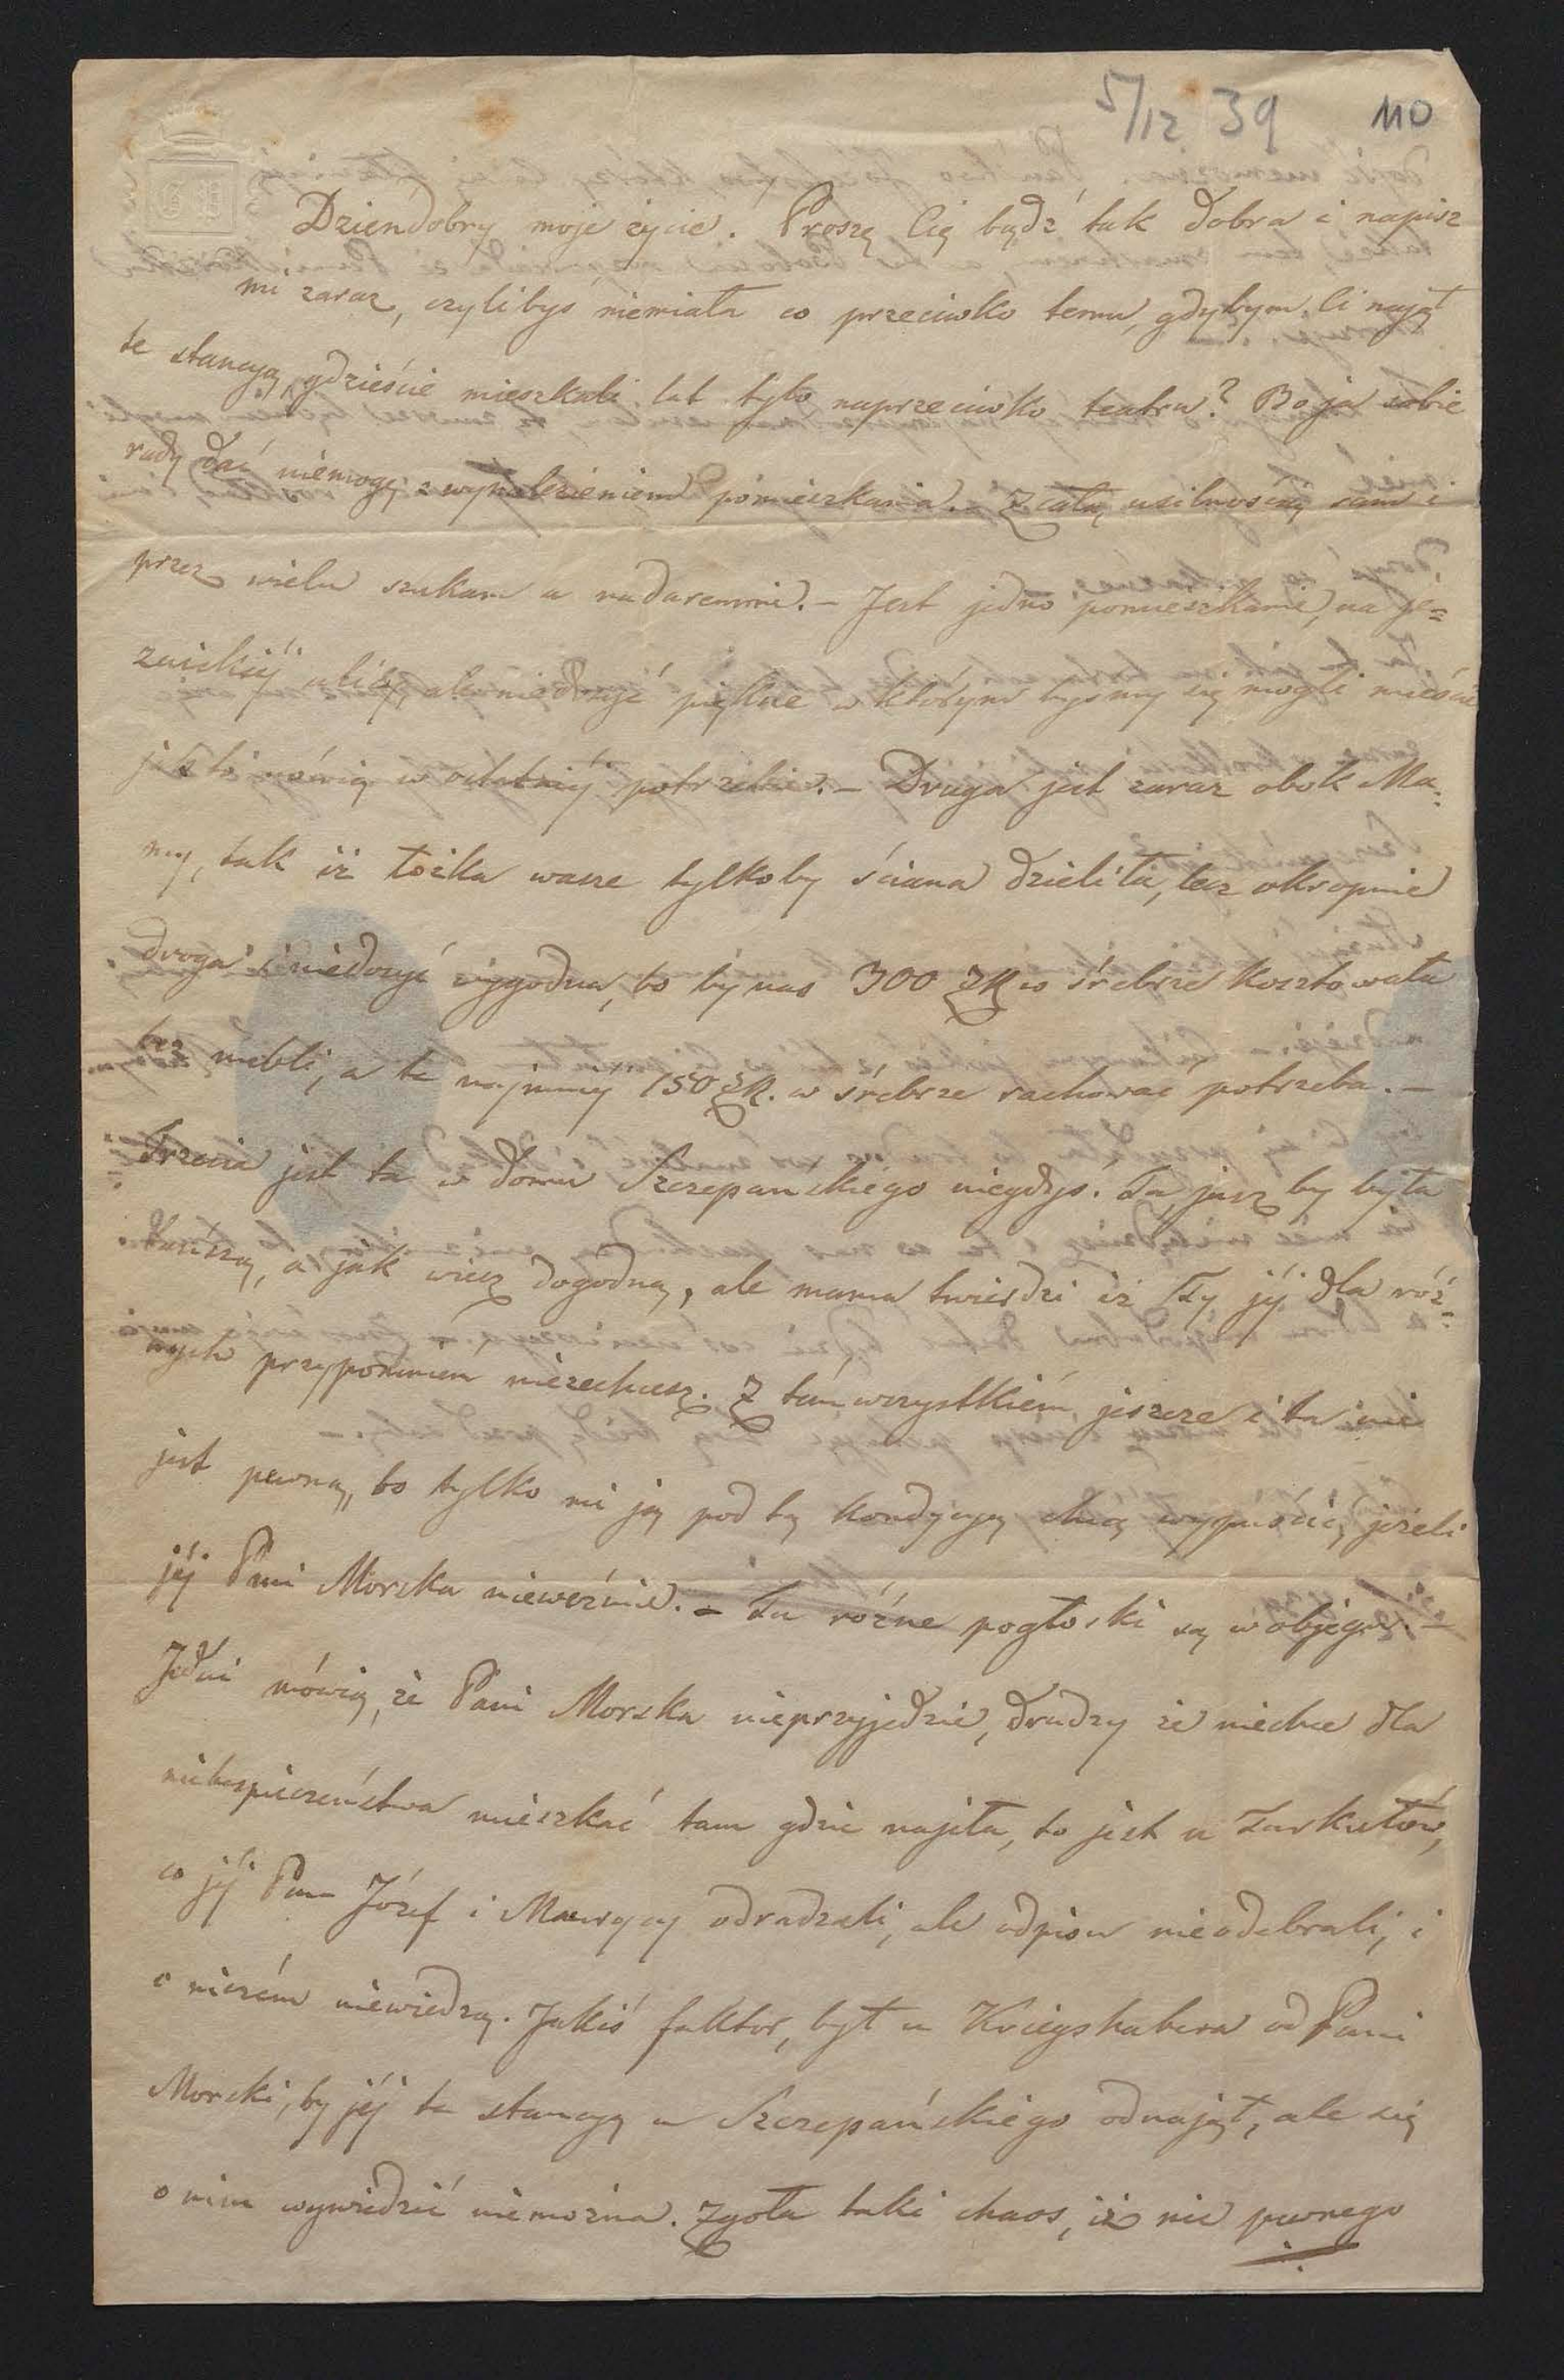 5/12 39 110
Dzieńdobry moje życie! Proszę Cię bądź tak dobra i napisz
mi zaraz, czylibyś niemiała co przeciwko temu, gdybym Ci najął
te stancyą, gdzieście mieszkali lat tylo naprzeciwko teatru? Bo ja sobie
rady dać niemogę z wynalezieniem pomieszkania. Z całą usilnością sam i
przez wielu szukam a nadaremnie. – Jest jedno pomieszkanie, na je=
zuickiéj ulicy, ale niedosyć piękne w którym byśmy się mogli mieścić
jak to mówią w ostatniéj potrzebie. – Druga jest zaraz obok Ma=
my, tak iż łóżka wasze tylkoby ściana dzieliła, lecz okropnie
droga i niedosyć wygodna, bo by nas 300 ZR w śrebrze kosztowała
bez mebli, a te najmniéj 150 ZR. w śrebrze rachować potrzeba. –
Trzecia jest ta w domu Szczepanskiégo niegdyś. Ta jusz by była
tańszą, a jak wiesz dogodną, ale mama twierdzi iż Ty jéj dla róż=
nych przypomnień niezechcesz. Z tém wszystkiém jeszcze i ta nie
jest pewną, bo tylko mi ją pod tą kondycyą chcą wypuścić, jeżeli
jéj Pani Morska nieweźmie. – Tu różne pogłoski są w objegu. –
Jedni mówią, że Pani Morska nieprzyjedzie, drudzy że niechce dla
niebezpieczeństwa mieszkać tam gdzie najęła, to jest u Turkułów,
co jéj Pan Józef i Maurycy odradzali, ale odpisu nieodebrali, i
o niczém niewiedzą. Jakiś faktor, był u Kriegshabera od Pani
Morski, by jéj te stancyą u Szczepańskiégo odnajął, ale się
o nim wywiedzić niemożna. Zgoła taki chaos, iż nic pewnego